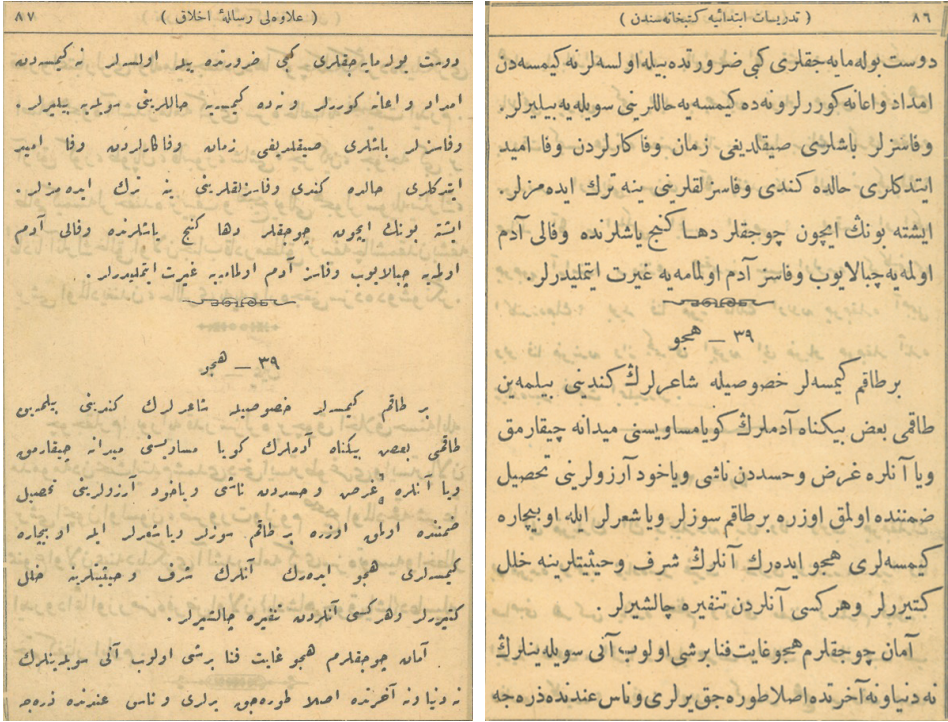 ٨٦ ( تدريسات ابتدائيه كتبخانه‌سندن )
دوست بوله‌مايه‌جقلرى كبى ضرورتده بيله اولسه‌لر نه كيمسه‌دن
امداد و اعانه كوررلر و نه‌ده كيمسه‌يه حاللرينى سويليه بيليرلر.
وفاسزلر باشلرى صيقلديغى زمان وفاكارلردن وفا اميد
ايتدكلرى حالده كندى وفاسزلقلرينى ينه ترك ايده‌مزلر.
ايشته بونك ايچون چوجقلر دها كنج ياشلرنده وفالى آدم
اولمه‌يه چبالايوب وفاسز آدم اولمامه‌يه غيرت ايتمليدرلر.
٣٩ ــ هجو
بر طاقم كيمسه‌لر خصوصيله شاعرلرك كندينى بيلمه‌ين
طاقمى بعض بيكناه آدملرك كويا مساويسنى ميدانه چيقارمق
ويا آنلره غرض و حسددن ناشى وياخود آرزولرينى تحصيل
ضمننده اولمق اوزره بر طاقم سوزلر ويا شعرلر ايله او بيچاره
كيمسه‌لرى هجو ايده‌رك آنلرڭ شرف و حيثيتلرينه خلل
كتيررلر و هركسى آنلردن تنفيره چالشيرلر .
آمان چوجقلرم هجو غايت فنا برشى اولوب آنى سويله‌ينلرڭ
نه دنيا و نه آخرتده اصلا طوره‌جق يرلرى و ناس عندنده ذره‌جه
( علاوه‌لى رسالۀ اخلاق ) ٨٧
دوست بوله‌مايه‌جقلرى كبى ضرورتده بيله اولسه‌لر نه كيمسه‌دن
امداد و اعانه كوررلر و نه‌ده كيمسه‌يه حاللرينى سويليه بيليرلر.
وفاسزلر باشلرى صيقلديغى زمان وفاكارلردن وفا اميد
ايتدكلرى حالده كندى وفاسزلقلرينى ينه ترك ايده‌مزلر.
ايشته بونك ايچون چوجقلر دها كنج ياشلرنده وفالى آدم
اولمه‌يه چبالايوب وفاسز آدم اولمامه‌يه غيرت ايتمليدرلر.
٣٩ ــ هجو
بر طاقم كيمسه‌لر خصوصيله شاعرلرك كندينى بيلمه‌ين
طاقمى بعض بيكناه آدملرك كويا مساويسنى ميدانه چيقارمق
ويا آنلره غرض و حسددن ناشى وياخود آرزولرينى تحصيل
ضمننده اولمق اوزره بر طاقم سوزلر ويا شعرلر ايله او بيچاره
كيمسه‌لرى هجو ايده‌رك آنلرك شرف و حيثيتلرينه خلل
كتيررلر و هركسى آنلردن تنفيره چالشيرلر .
آمان چوجقلرم هجو غايت فنا برشى اولوب آنى سويله‌ينلرك
نه دنيا و نه آخرتده اصلا طوره‌جق يرلرى و ناس عندنده ذره‌جه